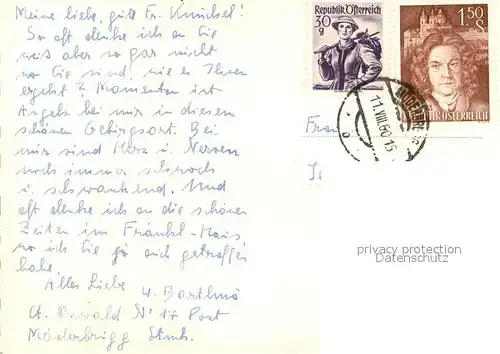 Meine liebe, gute Fr. Kunschel!
So oft denke ich an Sie
weiß aber so gar nicht
wo Sie sind, wie es Ihnen
ergeht? Momentan ist
Angela bei mir in diesem
schönen Gebirgsort. Bei
mir sind Herz u. Nerven
noch immer schwach
u. schwankend. Und
oft denke ich an die schönen
Zeiten im Fränkl-Haus
wo ich Sie ja auch getroffen
habe.
Alles Liebe
W. Barthmó
St. Oswald Nr 17 Post
Möderbrugg Stmk.
REPUBLIK ÖSTERREICH
30
g
1.50
S
REPUBLIK ÖSTERREICH
11.VIII.60-15
Frau
privacy protection
Datenschutz